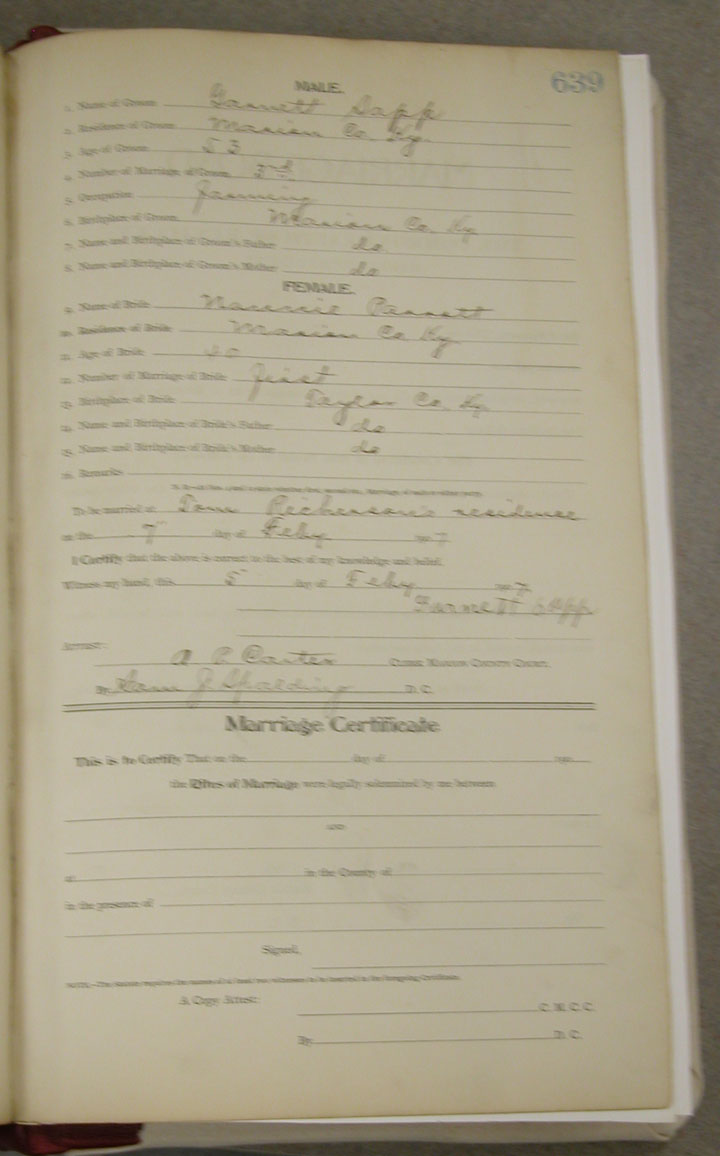 639
MALE.
1. Name of Groom Garnett Sapp
2. Residence of Groom Marion Co. Ky.
3. Age of Groom 53
4. Number of Marriage of Groom 3rd
5. Occupation Farming
6. Birthplace of Groom Marion Co. Ky
7. Name and Birthplace of Groom's Father do
8. Name and Birthplace of Groom's Mother do
FEMALE.
9. Name of Bride Parrott
10. Residence of Bride Marion Co. Ky.
11. Age of Bride 40
12. Number of Marriage of Bride first
13. Birthplace of Bride Taylor Co. Ky
14. Name and Birthplace of Bride's Father do
15. Name and Birthplace of Bride's Mother do
16. Remarks
To be married at Tom residence
on the 7" day of Feby 1907
I Certify that the above is correct to the best of my knowledge and belief.
Witness my hand, this 5 day of Feby 1907
Garnett Sapp
ATTEST:
A C Carter CLERK MARION COUNTY COURT.
By Sam J Spalding D. C.
Marriage Certificate
This is to Certify That on the day of 190
the Rites of Marriage were legally solemnized by me between
AND
at in the County of
in the presence of
Signed,
NOTE.—The statute requires the names of at least two witnesses to be inserted in the foregoing Certificate.
A Copy Attest:
C. M. C. C.
By D. C.